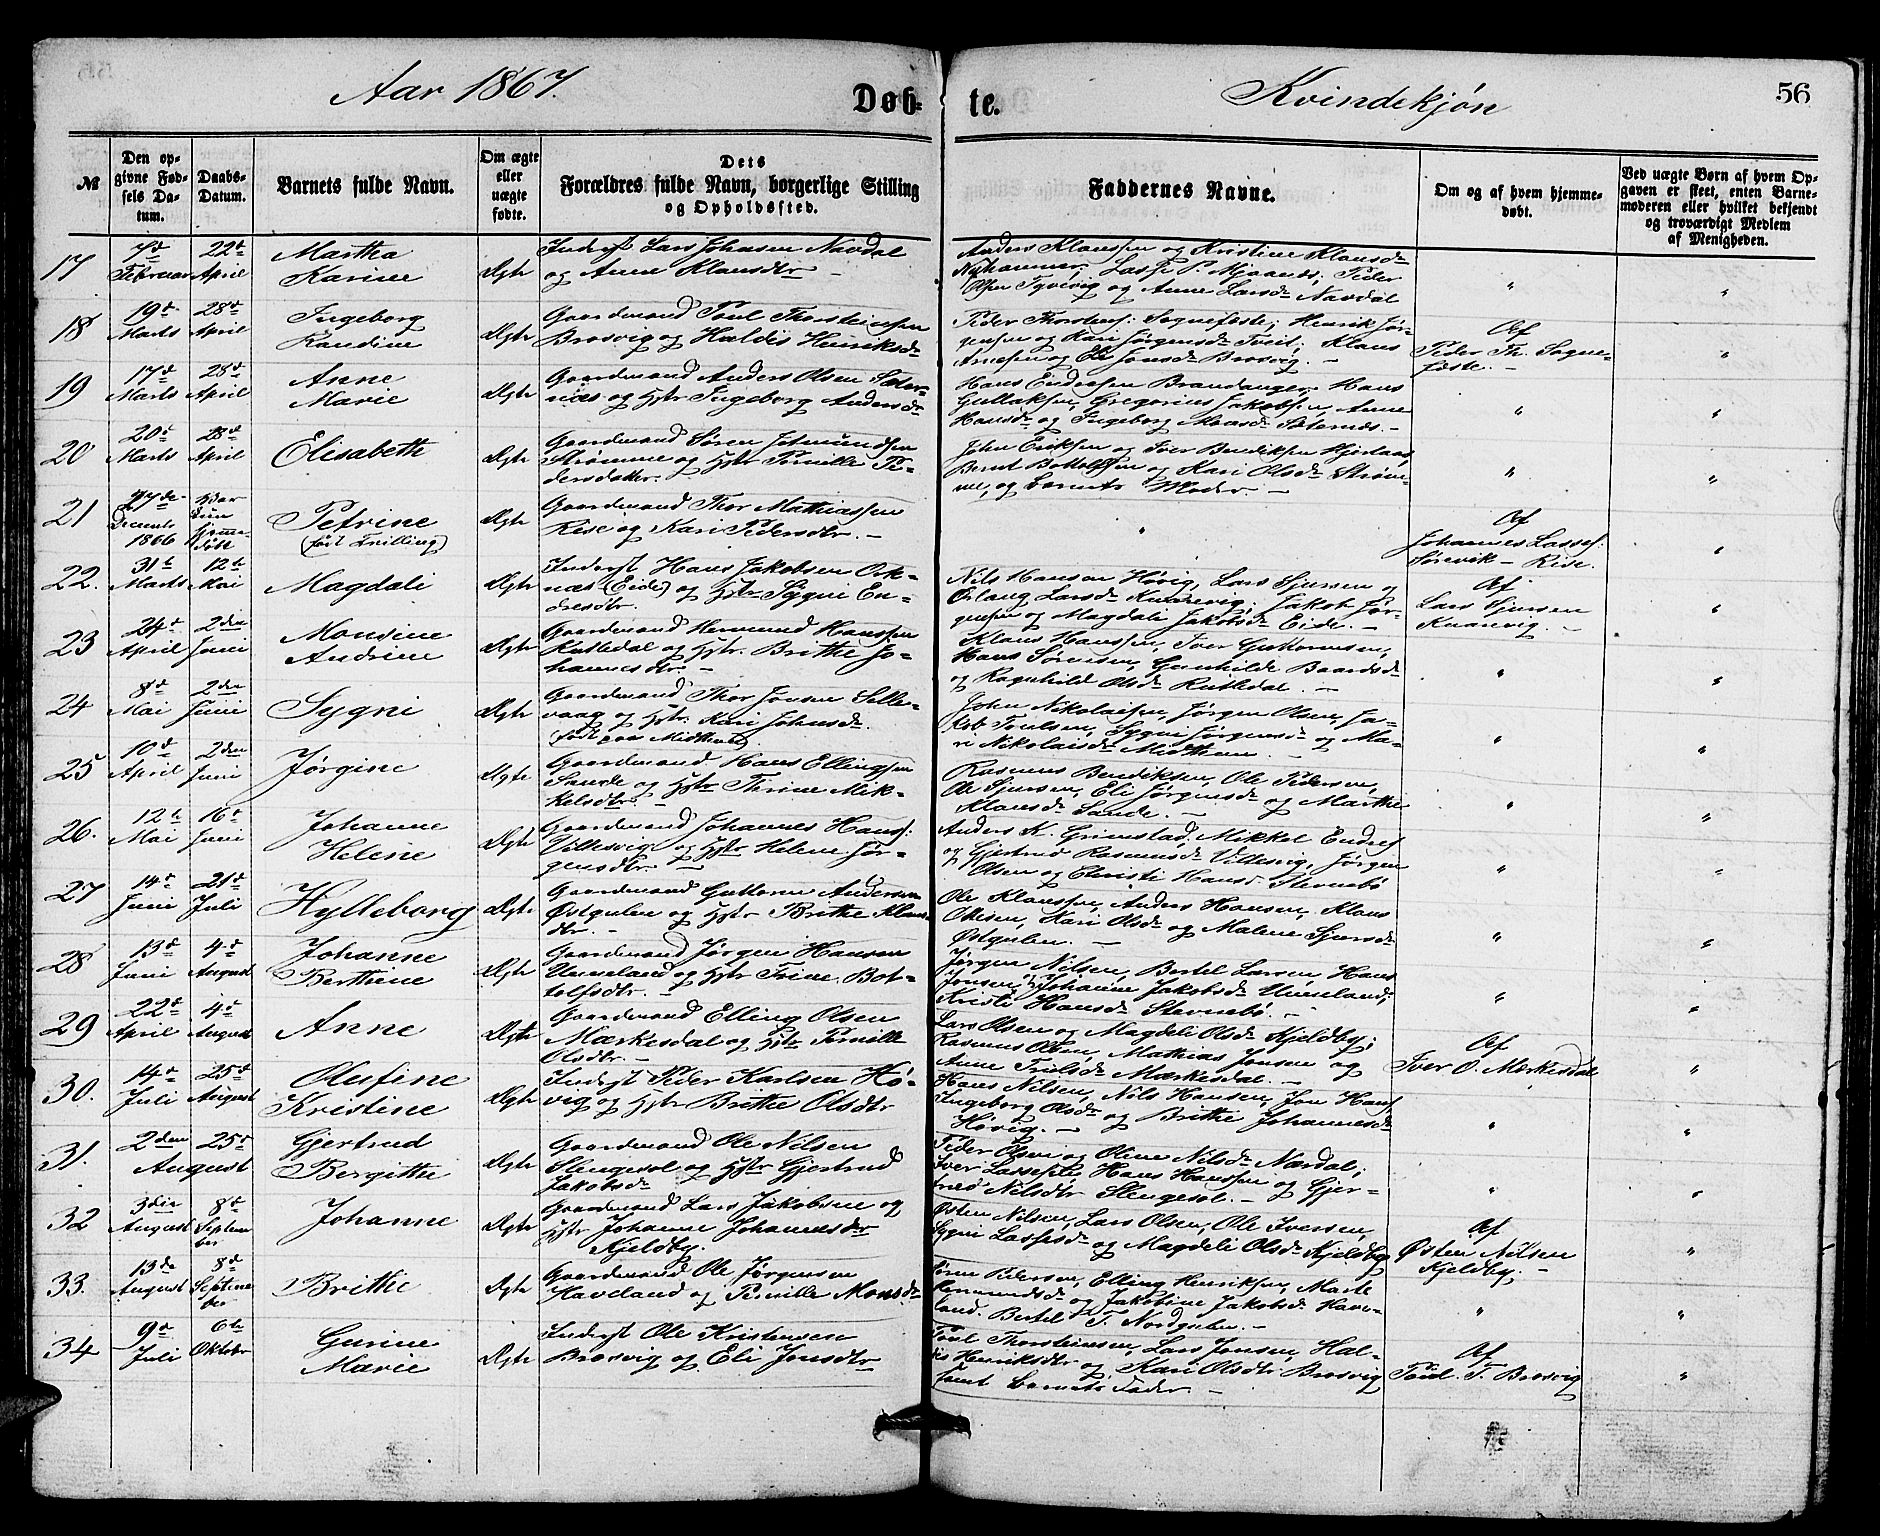 Aar 1867.
Døb-
te.
Kvindekjøn
56
№
Den op-
givne Fød-
sels Da-
tum.
Daabs-
Datum.
Barnets fulde Navn.
Om ægte
eller
uægte
fødte.
Dets
Forældres fulde Navn, borgerlige Stilling
og Opholdssted.
Faddernes Navne.
Om og af hvem hjemme-
døbt.
Ved uægte Børn af hvem Op-
gaven er skeet, enten Barne-
moderen eller hvilket bekjendt
og troværdigt Medlem
af Menigheden.
17
7d Februar
22d April
Martha
Karine
Ægte
Inderst Lars Johnsen Navdal
og Anne Klausdtr
Anders Klaussen og Kristine Klausdr
Nyhammer, Lasse P. Mjaanes, Peder
Olsen Tyvivig og Anne Larsdr Navdal
18
19d Marts
28d April
Ingeborg
Randine
Ægte
Gaardmand Poul Thorsteinsen
Brosvig og Haldis Henriksdr
Peder Thorstens: Sognefeste; Henrik Jør-
gensen og Kari Jørgensdr Tveit; Klaus
Arnesen og Eli Jonsdr Brosvig.
Af
Peder Th. Sogne-
feste.
19
17d Marts
28d April
Anne
Marie
Ægte
Gaardmand Anders Olsen Sæter-
næs og Hstr Ingeborg Andersdr
Hans Endresen Brandanger, Hans
Gullaksen, Gregorius Jakobsen, Anne
Hansdr og Ingeborg Monsdr Sæternæs.
20
20d Marts
28d April
Elisabeth
Ægte
Gaardmand Søren Jetmundsen
Strømme og Hstr Pernille Pe-
dersdatter.
John Eriksen og Iver Bendiksen Hjørlaas,
Bernt Bottolfsen og Kari Olsdr Strøm-
me, og barnets Moder.
21
27de Decembr 1866
Bar
kun
hjemme-
døbt
Petrine
(født Tvilling)
Ægte
Gaardmand Thor Mathiassen
Rise og Kari Pedersdtr.
Af
Johannes Lasses:
Sørevik - Rise.
22.
31d Marts
12d Mai
Magdali
Ægte
Inderst Hans Jakobsen Ok-
næs (Eide) og Hstr Sygni En-
dresdtr.
Nils Hansen Høvig, Lars Sjursen og
Ørlaug Larsdr Kvanevig; Jakob Jør-
gensen og Magdali Jakobsdr Eide.
Af
Lars Sjursen
Kvanvig.
23
24d April
2den Juni
Monsine
Andrine
Ægte
Gaardmand Hermund Hanssen
Rutledal og Hstr. Brithe Jo-
hannesdtr.
Klaus Hanssen, Iver Guttormsen,
Hans Sørensen, Gunhilde Baardsdr
og Ragnhild Olsdr Rutledal.
24
8d Mai
2den Juni
Sygni
Ægte
Gaardmand Thor Jonsen Selle-
vaag og Hstr. Kari Johnsdr.
(født paa Midthun)
John Nikolaisen, Jørgen Olsen, Ja-
kob Poulsen, Sygni Jørgensdr og Ma-
ri Nikolaisdr Midthun.
25
10d April
2den Juni
Jørgine
Ægte
Gaardmand Hans Ellingsen
Sande og Hstr Thrine Mik-
kelsdtr.
Rasmus Bendiksen, Ole Pedersen,
Ole Sjursen, Eli Jørgensdr og Marthe
Klausdr Sande.
26.
12d Mai
16d Juni
Johanne
Helene
Ægte
Gaardmand Johannes Hanss:
Villesvig og Hstr Helene Jør-
gensdtr.
Anders K. Grimstad, Mikkel Endres
og Gjertrud Rasmusdr Villesvig, Jørgen
Olsen og Christi Hansdr Sternebø
27
14d Juni
21d Juli
Hylleborg
Ægte
Gaardmand Guttorm Andersen
Østgulen og Hstr Brithe Klaus-
dtr.
Ole Klaussen, Anders Hansen, Klaus
Ottesen, Kari Olsdr og Malene Sjursdr
Østgulen.
28
13d Juni
4d August
Johanne
Berthine
Ægte
Gaardmand Jørgen Hansen
Unneland og Hstr Trine Bot-
tolfsdtr.
Jørgen Nilsen, Bertel Larsen, Hans
Jonsen, Johanne Jakobsdr Unneland;
Kristi Hansdr Sternebø.
29
22d April
4d August
Anne
Ægte
Gaardmand Elling Olsen
Mærkesdal og Hstr Pernille
Olsdtr.
Lars Olsen og Magdeli Olsdr Kjeldby;
Rasmus Olsen, Mathias Jonsen og
Anne Trulsdr Mærkesdal.
Af
Iver O. Mærkesdal
30.
14d Juli
25d August
Olufine
Kristine
Ægte
Inderst Peder Karlsen Hø-
vig og Hstr Brithe Olsdtr
Hans Nilsen, Nils Hansen, Jon Hans
Ingeborg Olsdr og Brithe Johannesdr
Høvig.
31.
2den August
25d
Gjertrud
Bergitthe
Ægte
Gaardmand Ole Nilsen
Slengesol og Hstr Gjertrud
Jakobsdr
Peder Olsen og Oline Nilsdr Nærdal,
Iver Lassesen, Hans Hanssen og Gjer-
trud Nilsdtr Slengesol.
32
3die August
8d Septem
ber
Johanne
Ægte
Gaardmand Lars Jakobsen og
Hstr Johanne Johannesdr
Kjeldby.
Østen Nilsen, Lars Olsen, Ole Iversen,
Sygni Lassesdr og Magdeli Olsdr Kjeldby
Af
Østen Nilsen
Kjeldby.
33.
13de August
8d Septem
ber
Brithe
Ægte
Gaardmand Ole Jørgensen
Haveland og Pernille Monsdr
Søren Pedersen, Elling Henriksen, Marte
Hermundsdr og Jakobine Jakobsdr Have-
land. Bertel T. Nordgulen.
34
9d Juli
6te Oktobr
Gurine
Marie
Ægte
Inderst Ole Kristensen
Brosvig og Eli Jonsdtr
Poul Thorsteinsen, Lars Jonsen, Hal-
dis Henriksdtr og Kari Olsdtr Brosvig
samt barnets Fader
Af
Poul. T. Brosvig